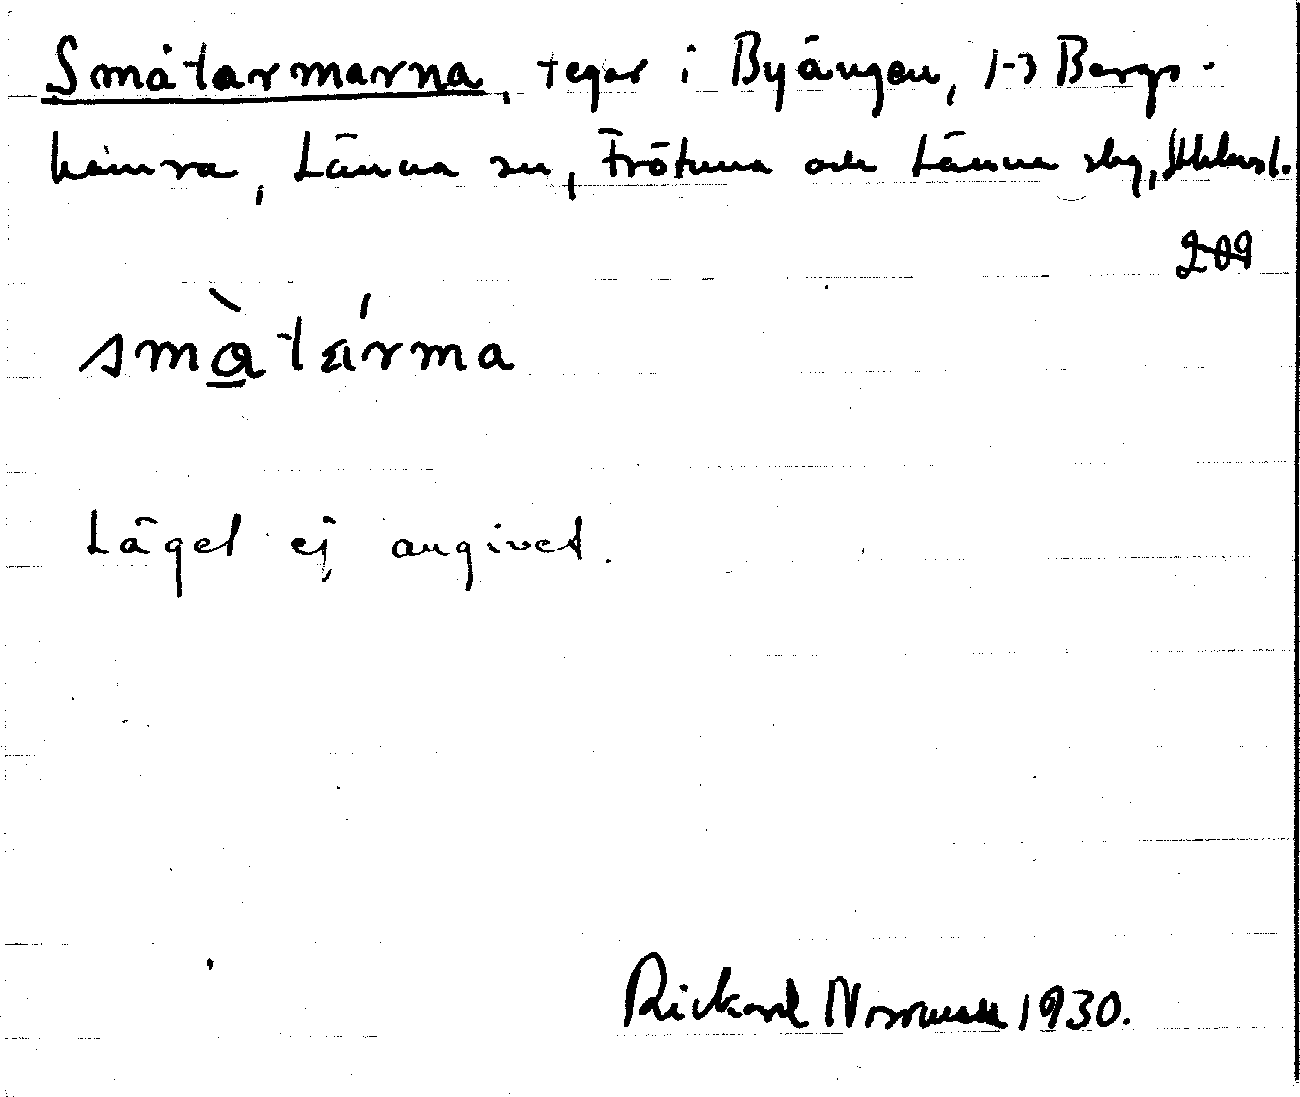 Småtarmarna, tegar i Byängen, 1-3 Bergs-
hamra, Länna sn, Frötuna och Länna skg, Sthlms l.
209
smàtárma
Läget ej angivet.
Rickard Norrman 1930.